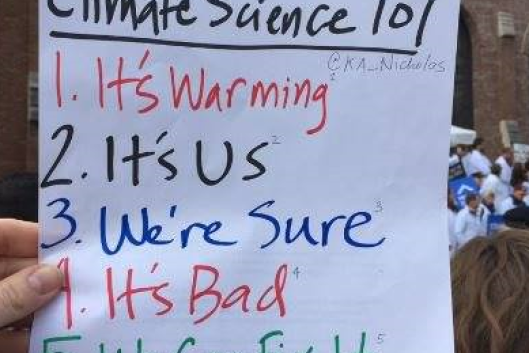 Climate Science 101
@KA_Nicholas
1. It's Warming 1
2. It's Us 2
3. We're Sure 3
4. It's Bad 4
5. We Can Fix It 5